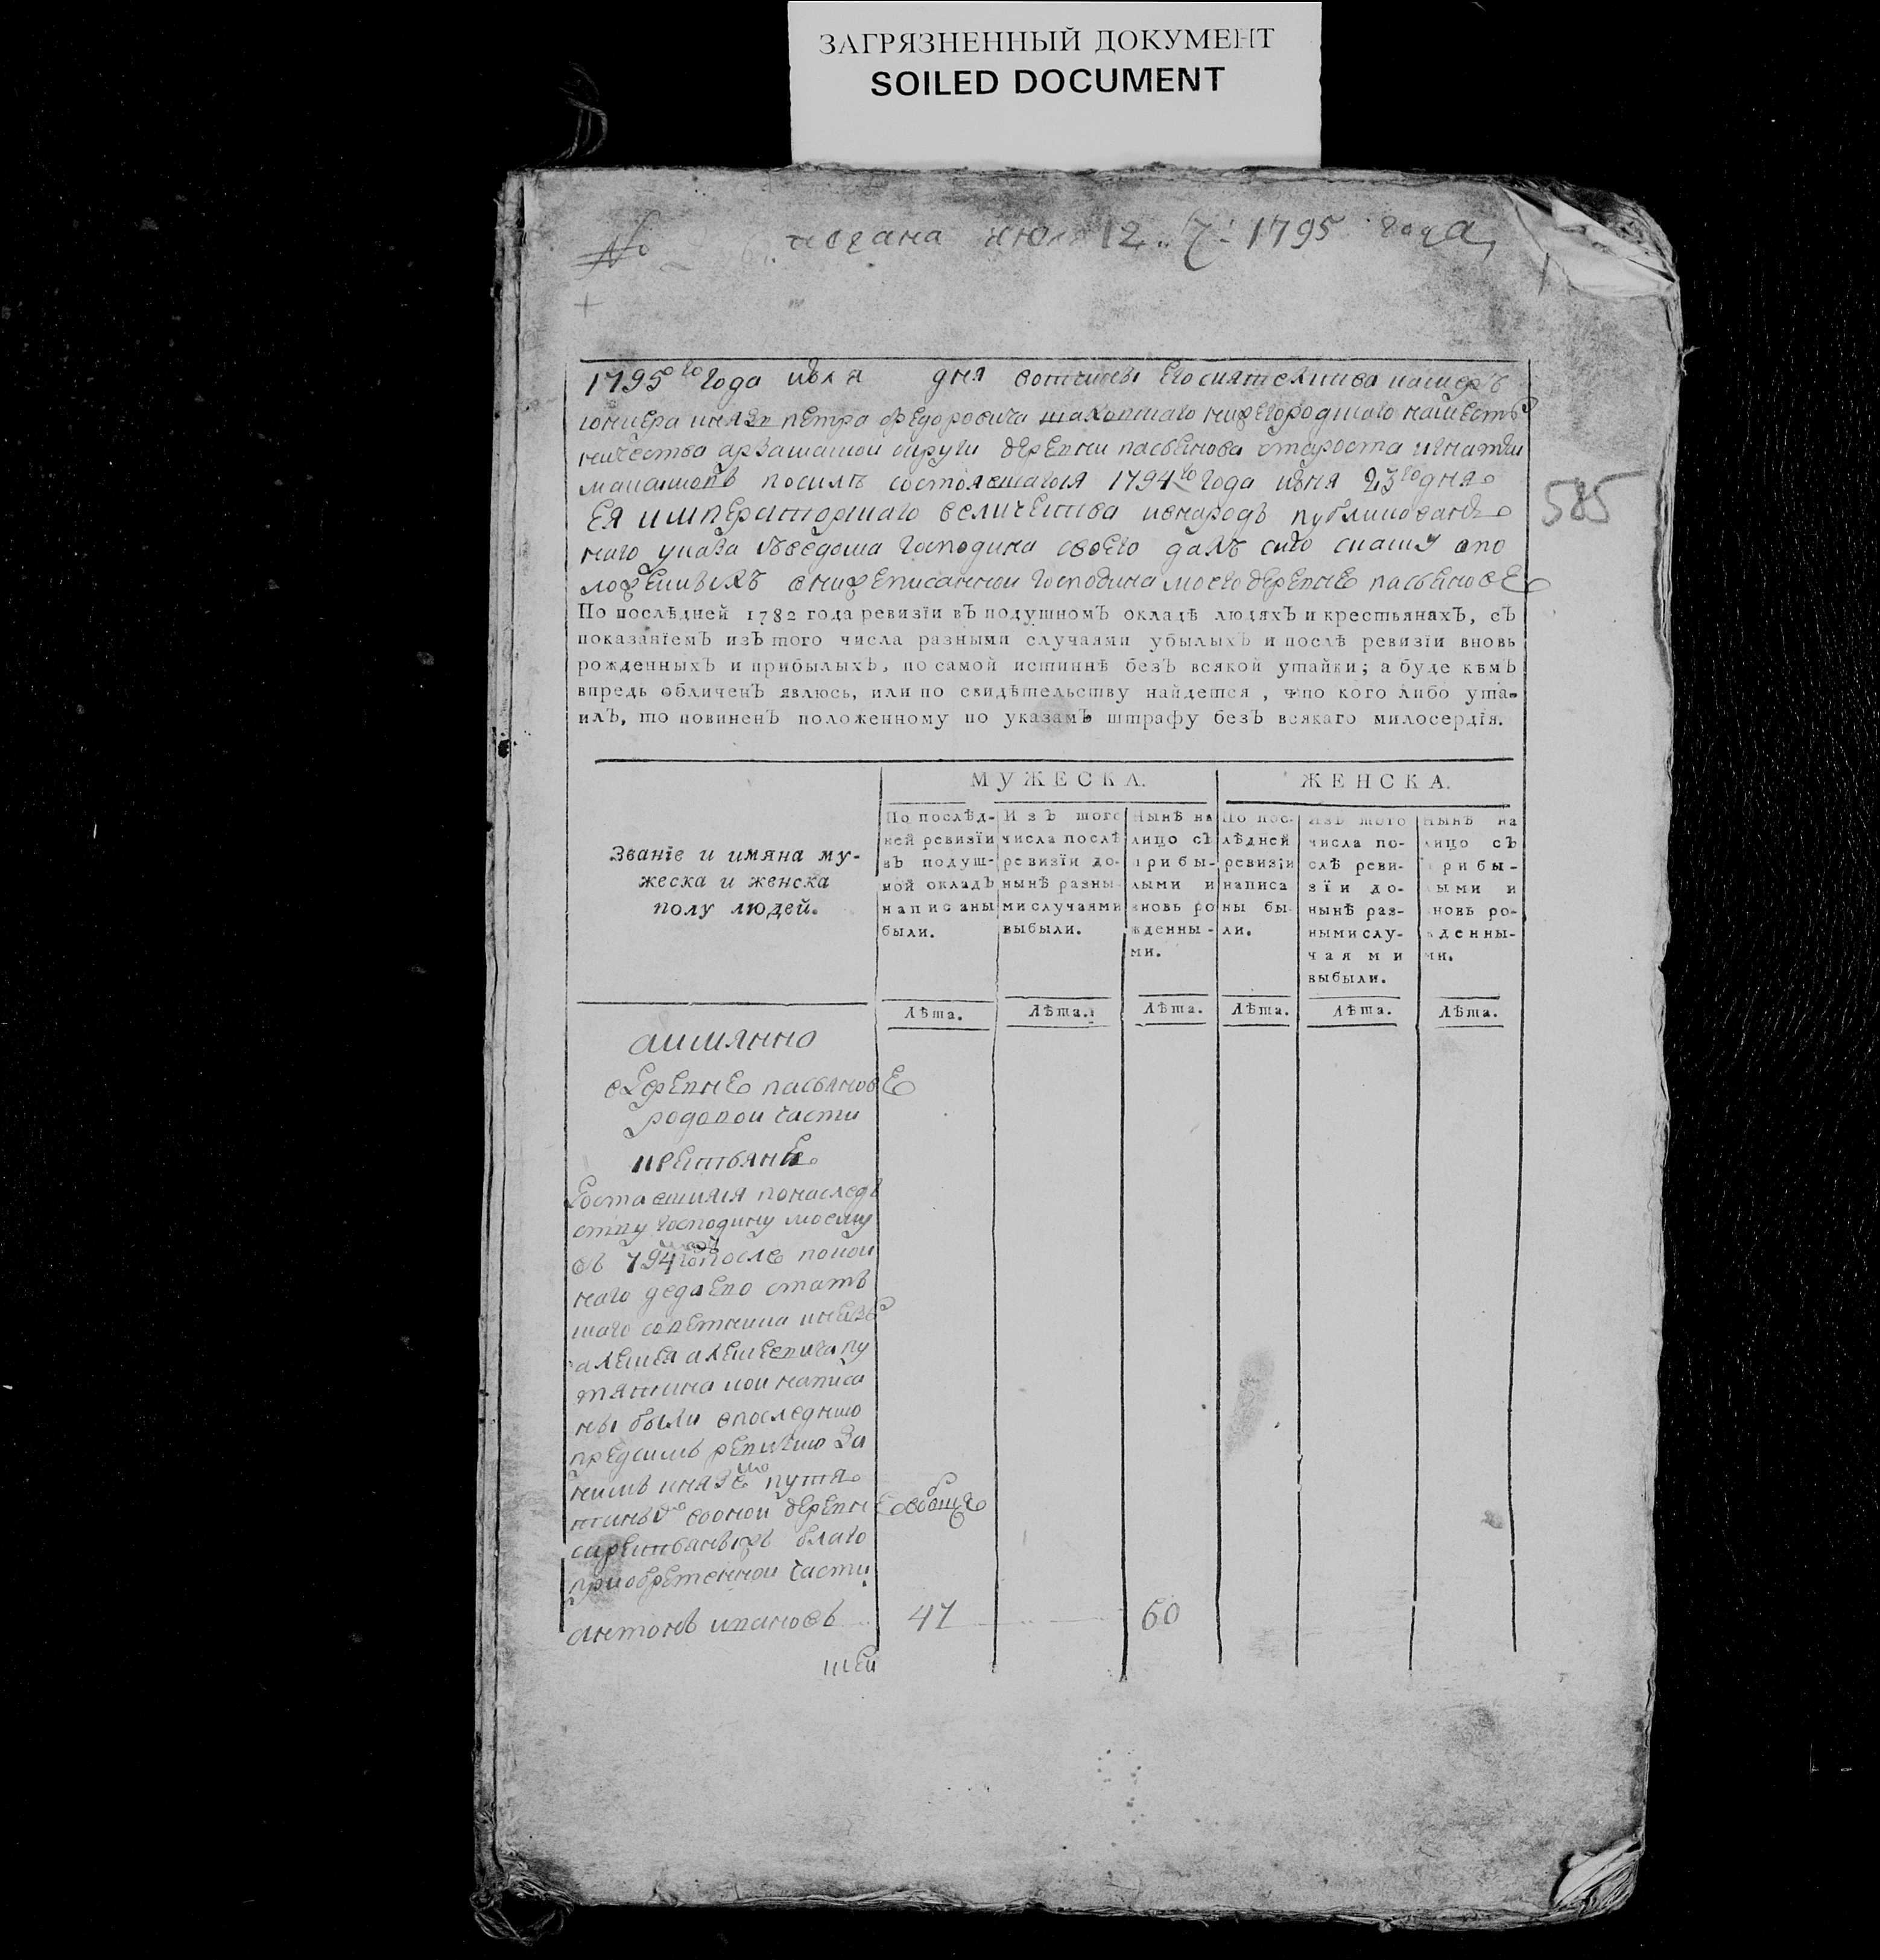 ЗАГРЯЗНЕННЫЙ ДОКУМЕНТ
SOILED DOCUMENT
№ подана июля 12 1795 года
1795го года июля дня вотчины его сиятельства камеръ
юнкера князя петра федоровича нижегородского намест
ничества арзамаской округи деревни пасьянова староста игнатеи
посиле состоявшагося 1794го года июня 23го дня
ея императорскаго величества внародъ публикован
наго указа господина своего далъ сию скаску опо
ложенныхъ внижеписаннои господина моего деревне пасьянове
По послѣдней 1782 года ревизїи въ подушномъ окладѣ людяхъ и крестьянахъ, съ
показанїемъ изъ того числа разными случаями убылыхъ и послѣ ревизїи вновь
рожденныхъ и прибылыхъ, по самой истиннѣ безъ всякой утайки; а буде кѣмъ
впредь обличенъ явлюсь, или по свидѣтельству найдется, что кого либо ута-
илъ, то повиненъ положенному по указамъ штрафу безъ всякаго милосердїя.
МУЖЕСКА.
ЖЕНСКА.
Званїе и имяна му-
жеска и женска
полу людей.
По послѣд-
ней ревизїи
въ подуш-
ной окладъ
написаны
были.
Изъ того
числа послѣ
ревизїи до-
нынѣ разны-
ми случаями
выбыли.
Нынѣ на
лицо съ
прибы-
лыми и
вновь ро
жденны-
ми.
По пос-
лѣдней
ревизїи
написа
ны бы
ли.
Изъ того
числа по-
слѣ реви-
зїи до-
нынѣ раз-
ными слу-
чаями
выбыли.
Нынѣ на
лицо съ
прибы-
лыми и
вновь ро-
жденны-
ми.
Лѣта. Лѣта. Лѣта. Лѣта. Лѣта. Лѣта.
585
аимянно
вдеревне пасьянове
родовои части
крестьяне
доставшияся понаслед
ству господину моему
въ 794 после покои
наго деда ево статъ
скаго советника князя
алексея алексеевича пу
тятина кои написа
ны были впоследнюю
предсимъ ревизию за
нимъ княземъ путя
тинымъ воднои деревне вобще
скрестьяны благо
приобретеннои части
антонъ ивановъ 47 60